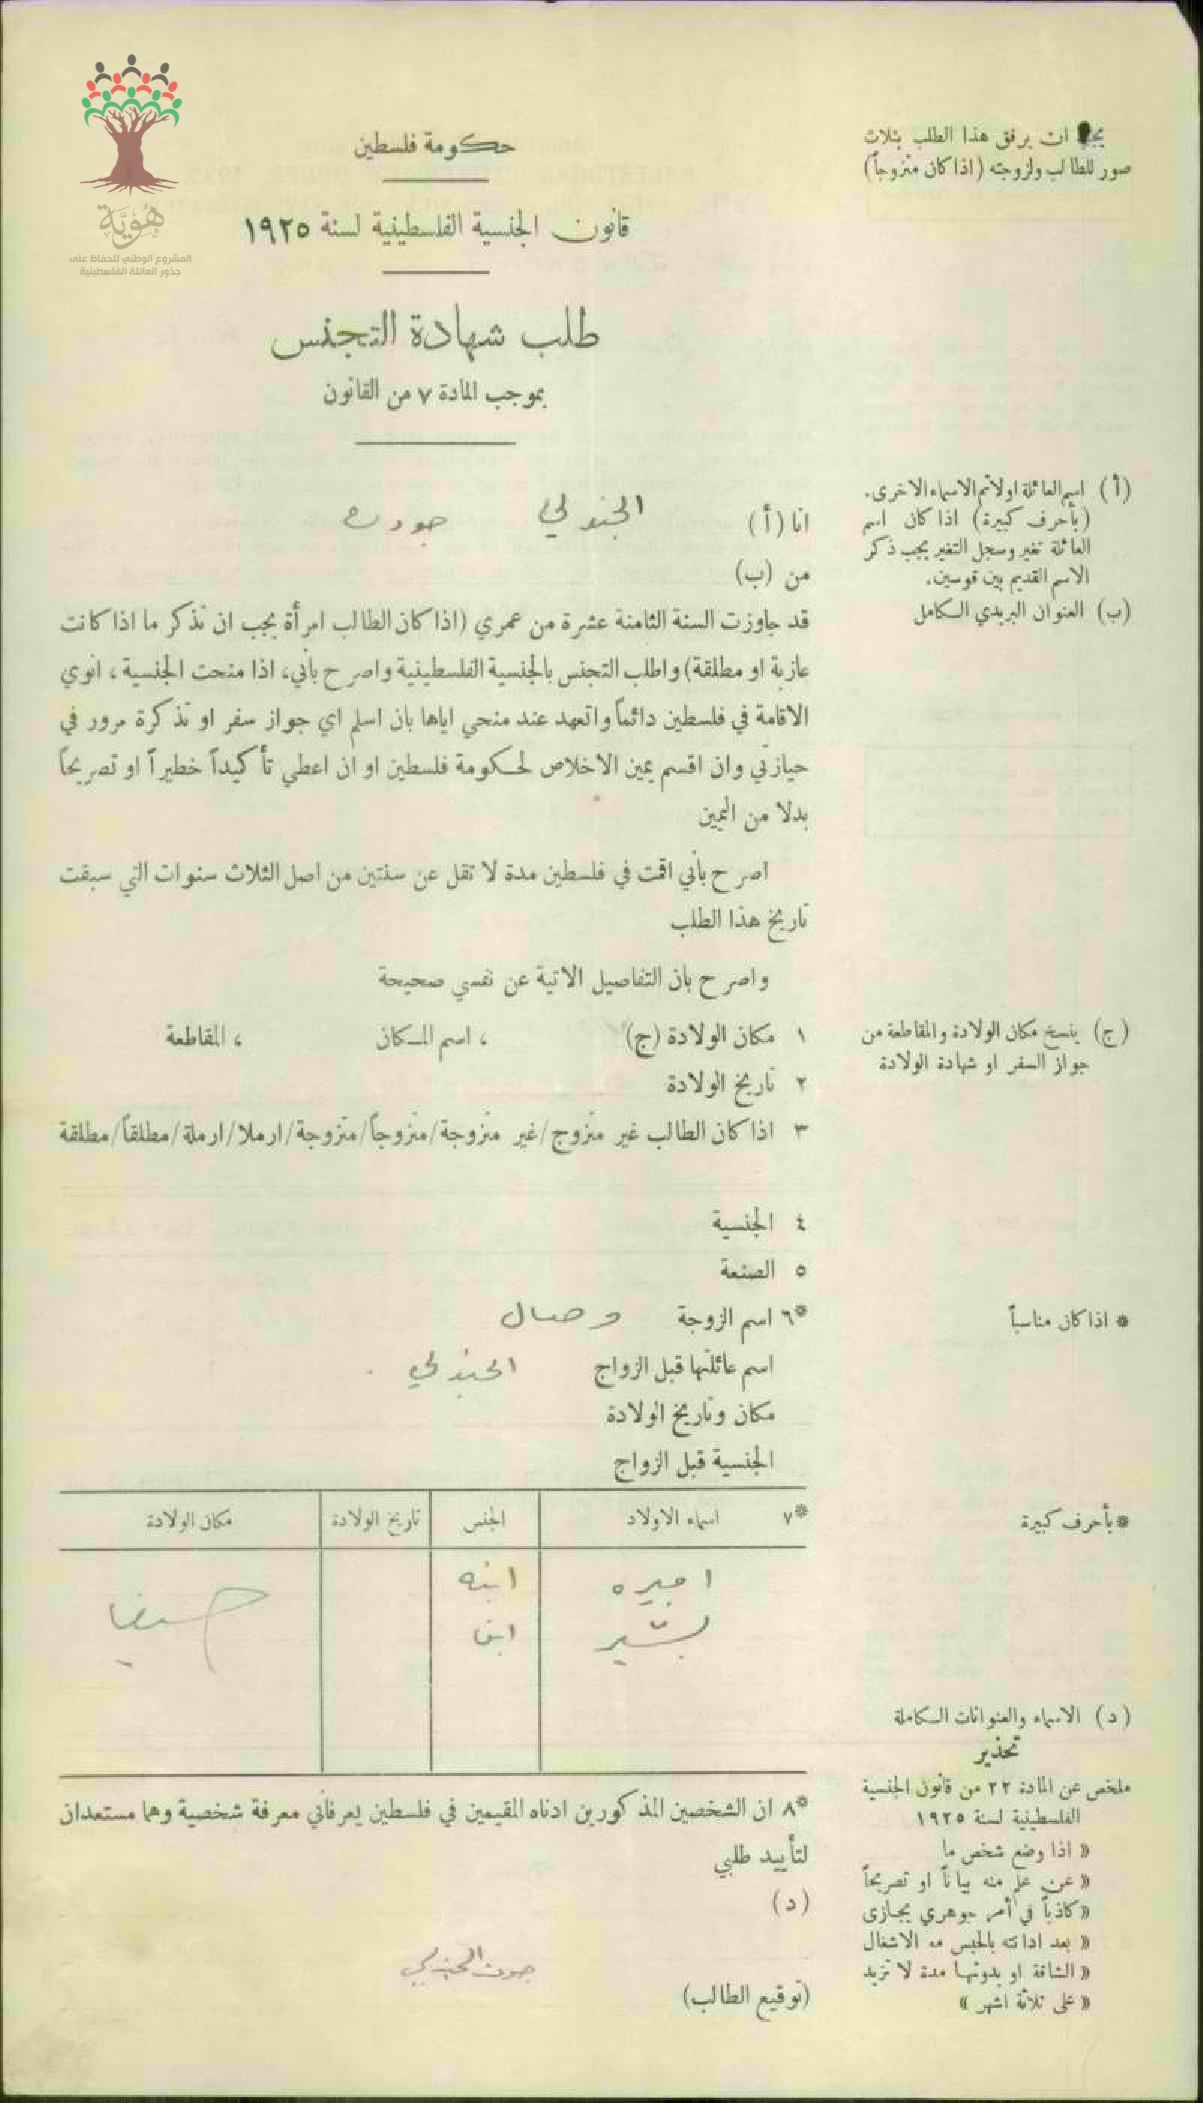 هُوِيَّة
المشروع الوطني للحفاظ على
جذور العائلة الفلسطينية
يجب ان يرفق هذا الطلب بثلاث
صور للطالب ولزوجته (اذا كان متزوجاً)
حكومة فلسطين
قانون الجنسية الفلسطينية لسنة ١٩٢٥
طلب شهادة التجنس
بموجب المادة ٧ من القانون
(أ) اسم العائلة اولا ثم الاسماء الاخرى.
(بأحرف كبيرة) اذا كان اسم
العائلة تغير وسجل التغير يجب ذكر
الاسم القديم بين قوسين.
(ب) العنوان البريدي الكامل
انا (أ) جودت
من (ب)
قد جاوزت السنة الثامنة عشرة من عمري (اذا كان الطالب امرأة يجب ان تذكر ما اذا كانت
عازبة او مطلقة) واطلب التجنس بالجنسية الفلسطينية واصرح بأني، اذا منحت الجنسية، انوي
الاقامة في فلسطين دائماً واتعهد عند منحي اياها بان اسلم اي جواز سفر او تذكرة مرور في
حيازتي وان اقسم يمين الاخلاص لحكومة فلسطين او ان اعطي تأكيداً خطيراً او تصريحاً
بدلا من اليمين
اصرح بأني اقمت في فلسطين مدة لا تقل عن سنتين من اصل الثلاث سنوات التي سبقت
تاريخ هذا الطلب
واصرح بان التفاصيل الاتية عن نفسي صحيحة
(ج) ينسخ مكان الولادة والمقاطعة من
جواز السفر او شهادة الولادة
١ مكان الولادة (ج) ، اسم المكان ، المقاطعة
٢ تاريخ الولادة
٣ اذا كان الطالب غير متزوج/غير متزوجة/متزوجاً/متزوجة/ارملا/ارملة/مطلقاً/مطلقة
٤ الجنسية
٥ الصنعة
* اذا كان مناسباً
*٦ اسم الزوجة وصال
اسم عائلتها قبل الزواج
مكان وتاريخ الولادة
الجنسية قبل الزواج
* بأحرف كبيرة
*٧ اسماء الاولاد الجنس تاريخ الولادة مكان الولادة
اميره ابنه حيفا
بشير ابن
(د) الاسماء والعنوانات الكاملة
تحذير
ملخص عن المادة ٢٢ من قانون الجنسية
الفلسطينية لسنة ١٩٢٥
« اذا وضع شخص ما
« عن علم منه بياناً او تصريحاً
« كاذباً في أمر جوهري يجازى
« بعد ادانته بالحبس مع الاشغال
« الشاقة او بدونها مدة لا تزيد
« على ثلاثة اشهر »
*٨ ان الشخصين المذكورين ادناه المقيمين في فلسطين يعرفاني معرفة شخصية وهما مستعدان
لتأييد طلبي
(د)
جودت
(توقيع الطالب)